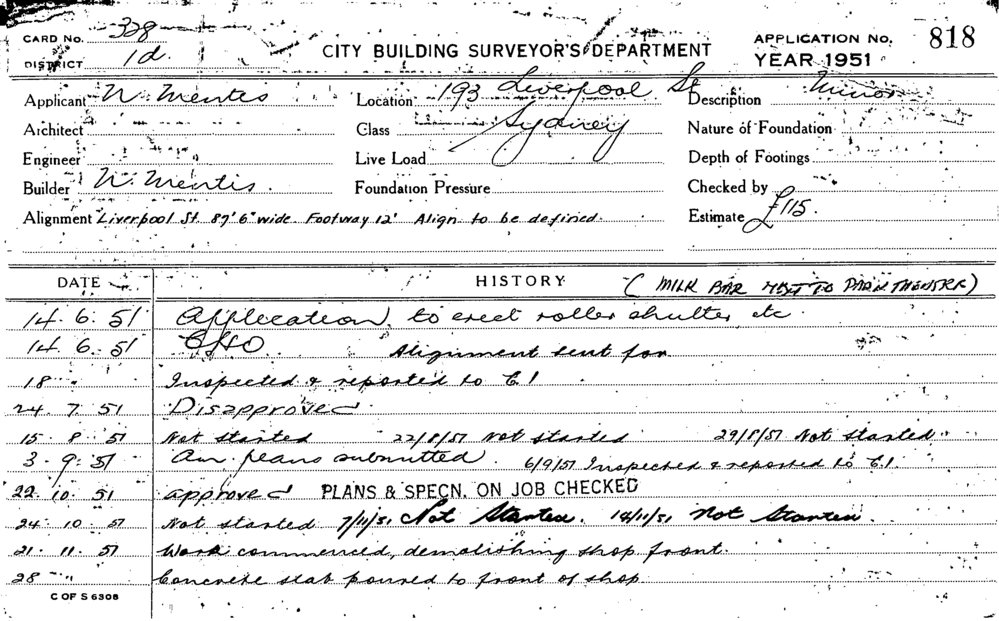 CARD No. 328
DISTRICT 1d.
CITY BUILDING SURVEYOR'S DEPARTMENT
APPLICATION No. 818
YEAR 1951
Applicant N. Mentis Location 193 Liverpool St Description Minor
Architect Class Sydney Nature of Foundation
Engineer Live Load Depth of Footings
Builder N. Mentis. Foundation Pressure Checked by
Alignment Liverpool St. 87' 6" wide. Footway 12' Align to be defined. Estimate £115.
DATE HISTORY (MILK BAR NEXT TO THEATRE)
14. 6. 51 Application, to erect roller shutter, etc.
14. 6. 51 Alignment sent for
18 " Inspected & reported to C.I
24. 7. 51 Disapproved
15. 8. 51 Not started 22/8/51 Not started 29/8/51 Not started
3. 9. 51 Am. plans submitted. 6/9/51 Inspected & reported to C.I.
22. 10. 51 approved PLANS & SPECN. ON JOB CHECKED
24. 10. 51 Not started 7/11/51 Not Started. 14/11/51 Not Started.
21. 11. 51 Work commenced, demolishing shop front.
28 " " Concrete slab poured to front of shop.
C OF S 6308